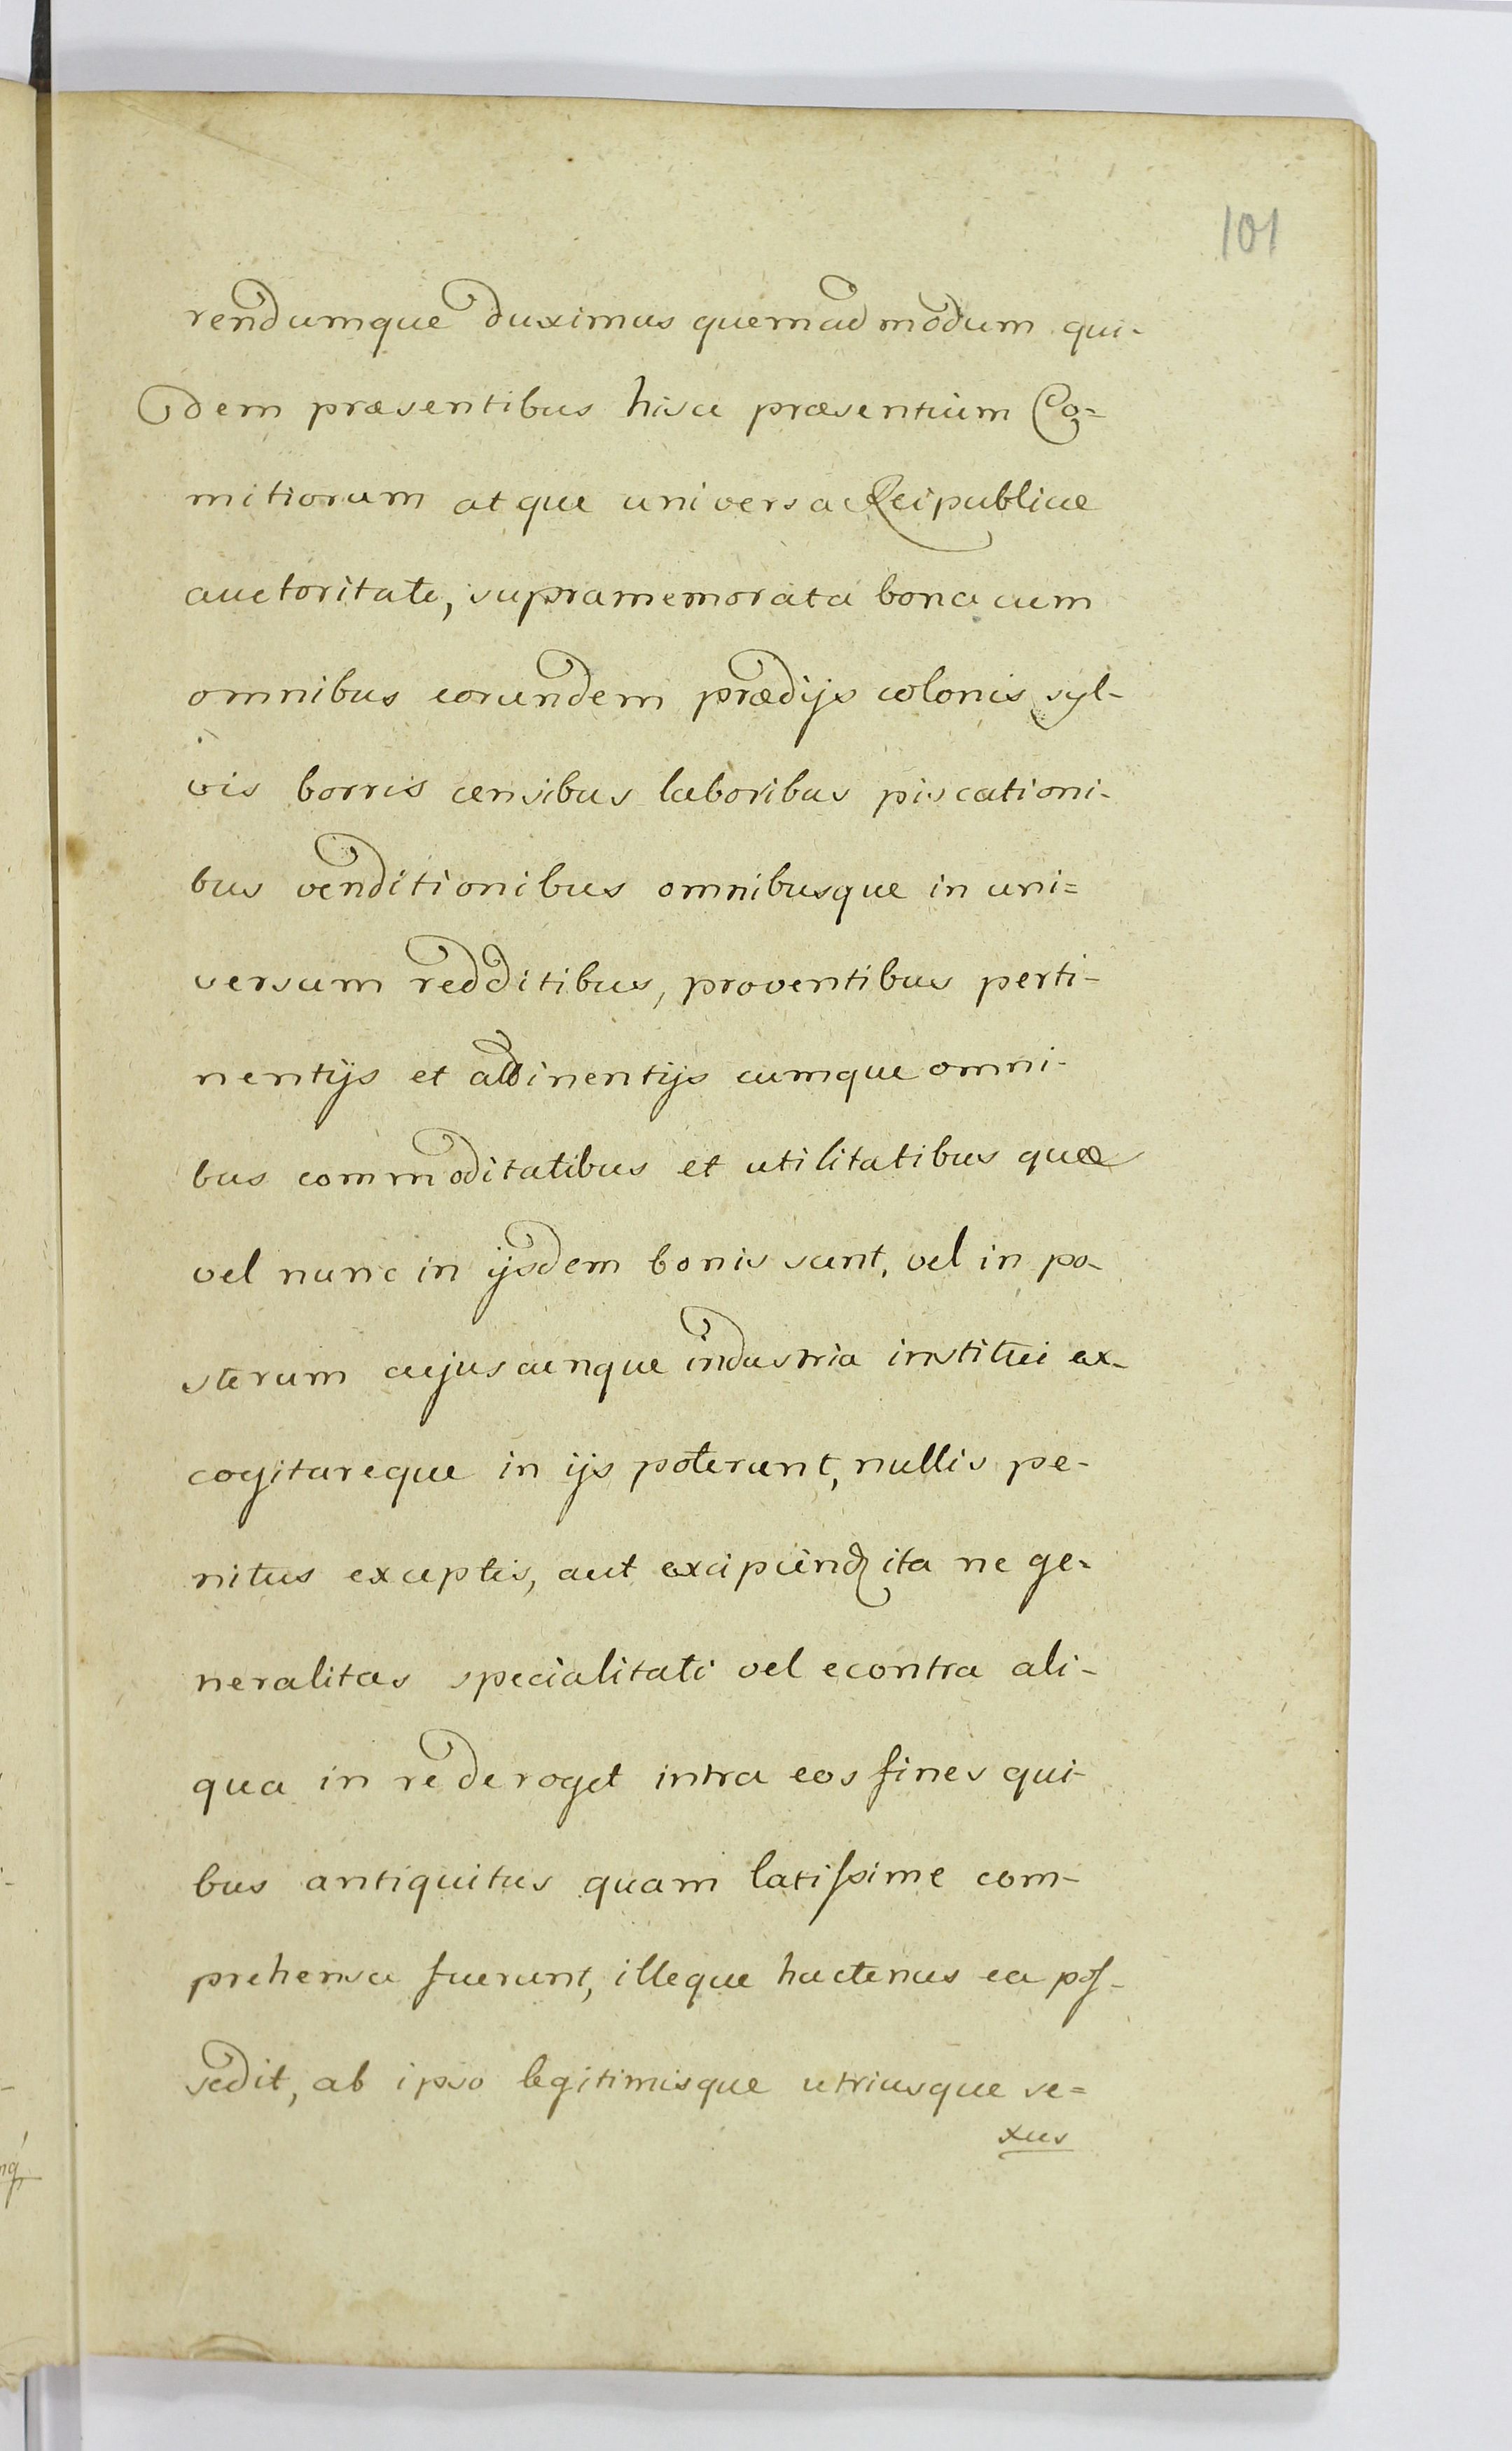 101
rendumque duximus quemadmodum qui-
dem præsentibus hisce præsentium Co=
mitiorum atque universa Reipublicæ
auctoritate, supramemorata bona cum
omnibus eorundem prædijs colonis syl-
vis borris censibus laboribus piscationi-
bus venditionibus omnibusque in uni=
versum redditibus, proventibus perti-
nentijs et attinentijs cumque omni-
bus commoditatibus et utilitatibus quæ
vel nunc in ijsdem bonis sunt, vel in po-
sterum cujuscunque industria institui ex-
cogitareque in ijs poterunt, nullis pe-
nitus exceptis, aut excipiend ita ne ge-
neralitas specialitati vel econtra ali-
qua in re deroget intra eos fines qui-
bus antiquitus quam latiſsime com-
prehensa fuerunt, illeque hactenus ea poſ-
sedit, ab ipso legitimisque utriusque se=
xus